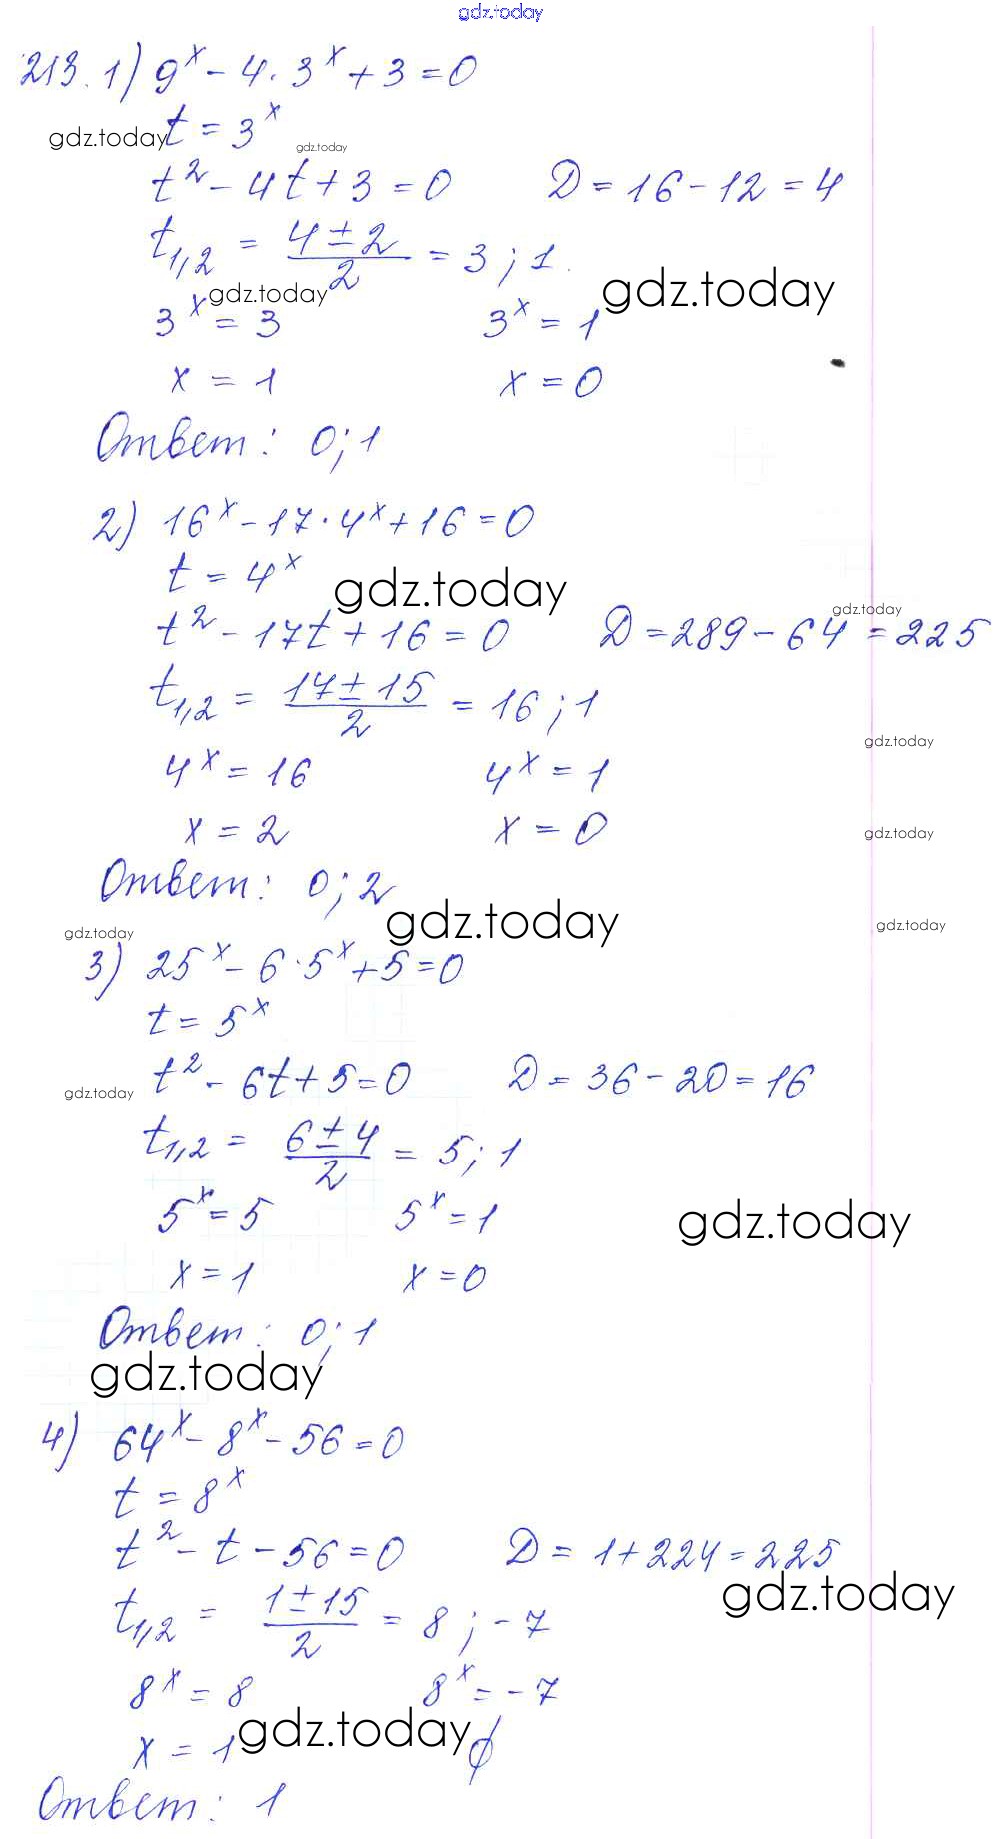 gdz.today
213. 1) 9^x - 4 · 3^x + 3 = 0
gdz.today t = 3^x
gdz.today
t^2 - 4t + 3 = 0 D = 16 - 12 = 4
t_{1,2} = \frac{4 ± 2}{2} = 3 ; 1.
gdz.today gdz.today
3^x = 3 3^x = 1
x = 1 x = 0
Ответ: 0; 1
2) 16^x - 17 · 4^x + 16 = 0
t = 4^x gdz.today
gdz.today
t^2 - 17t + 16 = 0 D = 289 - 64 = 225
t_{1,2} = \frac{17 ± 15}{2} = 16 ; 1
gdz.today
4^x = 16 4^x = 1
x = 2 x = 0 gdz.today
Ответ: 0; 2
gdz.today gdz.today gdz.today
3) 25^x - 6 · 5^x + 5 = 0
t = 5^x
t^2 - 6t + 5 = 0 D = 36 - 20 = 16
gdz.today
t_{1,2} = \frac{6 ± 4}{2} = 5; 1
5^x = 5 5^x = 1 gdz.today
x = 1 x = 0
Ответ: 0; 1
gdz.today
4) 64^x - 8^x - 56 = 0
t = 8^x
t^2 - t - 56 = 0 D = 1 + 224 = 225
gdz.today
t_{1,2} = \frac{1 ± 15}{2} = 8 ; -7
8^x = 8 8^x = -7
x = 1 gdz.today ∅
Ответ: 1